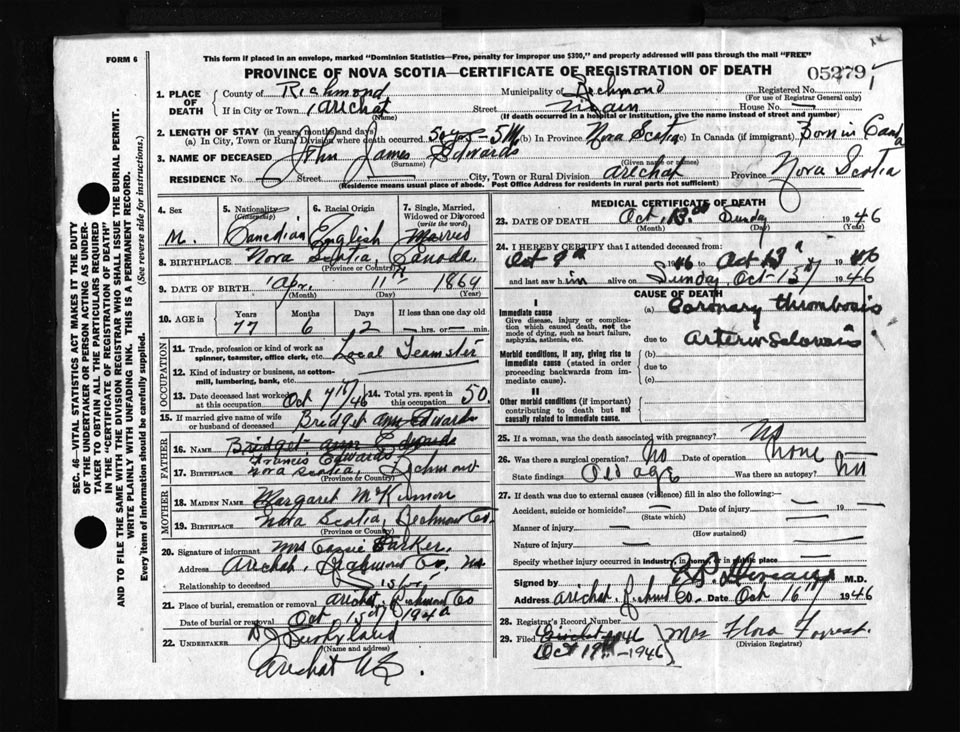 FORM 6
This form if placed in an envelope, marked "Dominion Statistics—Free, penalty for improper use $300," and properly addressed will pass through the mail "FREE"
PROVINCE OF NOVA SCOTIA—CERTIFICATE OF REGISTRATION OF DEATH
05279
SEC. 46—VITAL STATISTICS ACT MAKES IT THE DUTY
OF THE UNDERTAKER OR PERSON ACTING AS UNDER-
TAKER TO OBTAIN ALL THE PARTICULARS REQUIRED
IN THE "CERTIFICATE OF REGISTRATION OF DEATH" AND TO FILE THE SAME WITH THE DIVISION REGISTRAR WHO SHALL ISSUE THE BURIAL PERMIT.
WRITE PLAINLY WITH UNFADING INK. THIS IS A PERMANENT RECORD.
Every item of information should be carefully supplied. (See reverse side for instructions.)
1. PLACE OF DEATH
County of Richmond Municipality of Richmond Registered No.
(For use of Registrar General only)
If in City or Town Arichat Street Main House No. —
(Name) (If death occurred in a hospital or institution, give the name instead of street and number)
2. LENGTH OF STAY (in years, months and days)
(a) In City, Town or Rural Division where death occurred (b) In Province Nova Scotia (c) In Canada (if immigrant) Born in Canada
3. NAME OF DECEASED John James Edwards
(Surname) (Given name or names)
RESIDENCE No. Street City, Town or Rural Division Arichat Province Nova Scotia
(Residence means usual place of abode. Post Office Address for residents in rural parts not sufficient)
4. Sex M. 5. Nationality (Citizenship) Canadian 6. Racial Origin English 7. Single, Married, Widowed or Divorced (write the word) Married
8. BIRTHPLACE Nova Scotia, Canada
(Province or Country)
9. DATE OF BIRTH Apr. 11th 1869
(Month) (Day) (Year)
10. AGE in Years 77 Months 6 Days 2 If less than one day old — hrs. or — min.
OCCUPATION
11. Trade, profession or kind of work as spinner, teamster, office clerk, etc. Local Teamster
12. Kind of industry or business, as cotton-mill, lumbering, bank, etc.
13. Date deceased last worked at this occupation Oct 7th/46 14. Total yrs. spent in this occupation 50
15. If married give name of wife or husband of deceased Bridget Ann Edwards
FATHER
16. Name Bridget Ann Edwards
Francis Edwards
17. Birthplace Nova Scotia, Richmond
(Province or Country)
MOTHER
18. Maiden Name Margaret McKinnon
19. Birthplace Nova Scotia, Richmond Co.
(Province or Country)
20. Signature of informant Mrs Cassie Parker.
Address Arichat, Richmond Co., N.S.
Relationship to deceased Sister
21. Place of burial, cremation or removal Arichat, Richmond Co
Date of burial or removal Oct 15th
22. UNDERTAKER
(Name and address)
Arichat N.S.
MEDICAL CERTIFICATE OF DEATH
23. DATE OF DEATH Oct. 13th Sunday 1946
(Month) (Day) (Year)
24. I HEREBY CERTIFY that I attended deceased from:
Oct 9th 1946 to Oct 13th 1946
and last saw him alive on Sunday Oct 13th 1946
CAUSE OF DEATH
I
Immediate cause
Give disease, injury or complication which caused death, not the mode of dying, such as heart failure, asphyxia, asthenia, etc.
(a) Coronary thrombosis
due to
Morbid conditions, if any, giving rise to immediate cause (stated in order proceeding backwards from immediate cause).
(b)
due to
(c)
II
Other morbid conditions (if important) contributing to death but not causally related to immediate cause.
25. If a woman, was the death associated with pregnancy? No
26. Was there a surgical operation? No Date of operation None
State findings Old age Was there an autopsy? No
27. If death was due to external causes (violence) fill in also the following:—
Accident, suicide or homicide? — Date of injury — 19 —
(State which)
Manner of injury —
(How sustained)
Nature of injury —
Specify whether injury occurred in industry, in home, or in public place
Signed by M.D.
Address Arichat. Richmond Co. Date Oct 16th 1946
28. Registrar's Record Number
29. Filed Oct 19th—1946 Mrs Flora Forrest.
(Division Registrar)